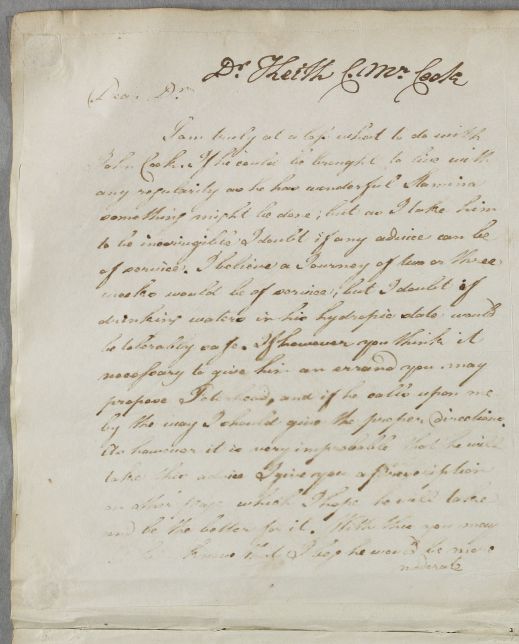 Dr. Keith C. Mr. Cook
Dear Dr.
I am truly at a loss what to do with
John Cook. If he could be brought to live with
any regularity as he has wonderful Stamina
something might be done; but as I take him
to be incorrigible I doubt if any advice can be
of service. I believe a Journey of two or three
weeks would be of service; but I doubt if
drinking waters in his hydropic state would
be tolerably safe. If however you think it
necessary to give him an errand you may
propose Peterhead, and if he calls upon me
by the way I should give the proper directions.
As however it is very improbable that he will
take this advice I give you a Prescription
on other page which I hope he will take
and be the better for it. With this you may
know that I beg he would be more
moderate